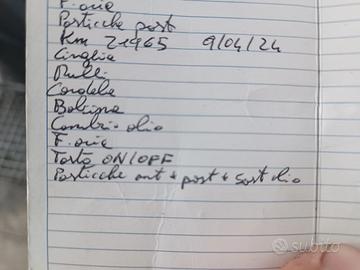 F. aria
Pasticche post
Km 21965 9/04/24
Cinghia
Rulli
Candela
Bobina
Cambio olio
F. aria
Tasto ON/OFF
Pasticche ant + post + sost olio
subito